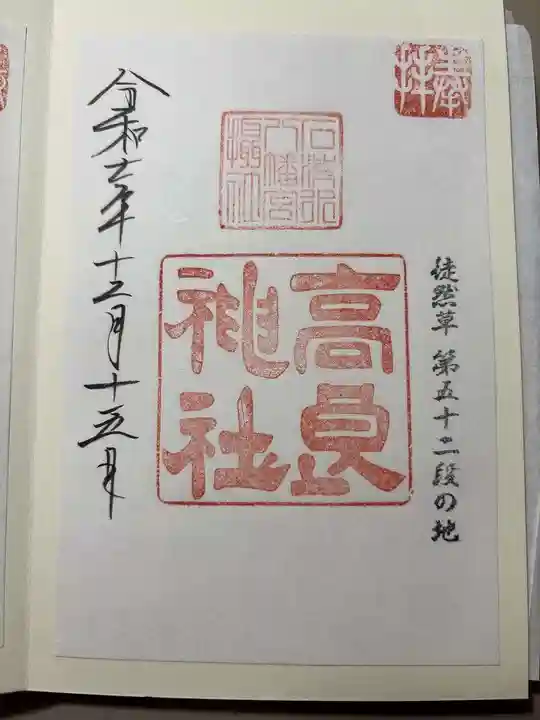 奉拝
徒然草 第五十二段の地
石清水
八幡宮
攝社
高良
神社
令和七年十二月十五日